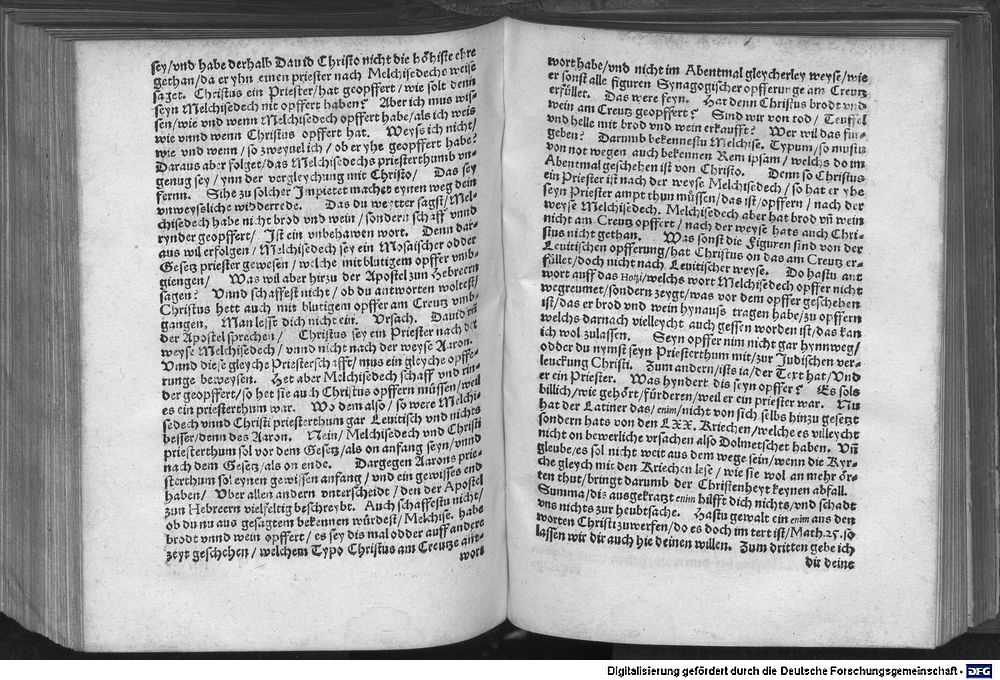 sey/vnd habe derhalb Dauid Christo nicht die höhiste ehre
gethan/da er yhn einen priester nach Melchisedechs weise
saget. Christus ein Priester/hat geopffert/wie solt denn
seyn Melchisedech nit opffert haben? Aber ich mus wis-
sen/wie vnd wenn Melchisedech opffert habe/als ich weis
wie vnnd wenn Christus opffert hat. Weyss ich nicht/
wie vnd wenn/so zweyuel ich/ob er yhe geopffert habe?
Daraus aber folget/das Melchisedechs priesterthumb vn-
genug sey/ynn der vergleychung mit Christo/ Das sey
fernn. Sihe zu solcher Impietet machet eynen weg dein
vnweyssliche widderrede. Das du weytter sagst/Mel-
chisedech habe nicht brod vnd wein/sondern schaff vnnd
rynder geopffert/ Ist ein vnbehawen wort. Denn dar-
aus wil erfolgen/Melchisedech sey ein Mosaischer odder
Gesetz priester gewesen/welche mit blutigem opffer vmb-
giengen/ Was wil aber hirzu der Apostel zun Hebreern
sagen? Vnnd schaffest nicht/ob du antworten woltest/
Christus hett auch mit blutigem opffer am Creutz vmb-
gangen. Man lesst dich nicht ein. Vrsach. Dauid vñ
der Apostel sprechen/ Christus sey ein Priester nach der
weyse Melchisedech/vnnd nicht nach der weyse Aaron.
Vnnd diese gleyche Priesterschafft/mus ein gleyche opffe-
runge beweysen. Het aber Melchisedech schaff vnd rin-
der geopffert/so het sie auch Christus opffern müssen/weil
es ein priesterthum war. Wo dem also/so were Melchi-
sedech vnnd Christi priesterthum gar Leuitisch vnd nichts
besser/denn des Aaron. Nein/Melchisedech vnd Christi
priesterthum sol vor dem Gesetz/als on anfang seyn/vnnd
nach dem Gesetz/als on ende. Dargegen Aarons prie-
sterthum sol eynen gewissen anfang/vnd ein gewisses end
haben/ Vber allen andern vnterscheidt/den der Apostel
zun Hebreern vielfeltig beschreybt. Auch schaffestu nicht/
ob du nu aus gesagtem bekennen würdest/Melchise. habe
brodt vnnd wein opffert/es sey dis mal odder auff andere
zeyt geschehen/welchem Typo Christus am Creutze ant-
wort
wort habe/vnd nicht im Abentmal gleycherley weyse/wie
er sonst alle figuren Synagogischer opfferunge am Creutz
erfüllet. Das were seyn. Hat denn Christus brodt vnd
wein am Creutz geopffert? Sind wir von tod/Teuffel
vnd helle mit brod vnd wein erkaufft? Wer wil das fur-
geben? Darumb bekennestu Melchise. Typum/so mustu
von not wegen auch bekennen Rem ipsam/welchs do im
Abentmal geschehen ist von Christo. Denn so Christus
ein Priester ist nach der weyse Melchisedech/so hat er yhe
seyn Priester ampt thun müssen/das ist/opffern/nach der
weyse Melchisedech. Melchisedech aber hat brod vñ wein
nicht am Creutz opffert/nach der weyse hats auch Chri-
stus nicht gethan. Was sonst die Figuren sind von der
Leuitischen opfferung/hat Christus on das am Creutz er-
füllet/doch nicht nach Leuitischer weyse. Do hastu ant
wort auff das Hozi/welchs wort Melchisedech opffer nicht
wegreumet/sondern zeygt/was vor dem opffer geschehen
ist/das er brod vnd wein hynauss tragen habe/zu opffern
welchs darnach vielleycht auch gessen worden ist/das kan
ich wol zulassen. Seyn opffer nim nicht gar hynnweg/
odder du nymst seyn Priesterthum mit/zur Judischen ver-
leuckung Christi. Zum andern/ists ia/der Text hat/Vnd
er ein Priester. Was hyndert dis seyn opffer? Es sols
billich/wie gehört/fürderen/weil er ein priester war. Nu
hat der Latiner das/enim/nicht von sich selbs hinzu gesetzt
sondern hats von den LXX. Kriechen/welche es villeycht
nicht on bewerliche vrsachen also Dolmetschet haben. Vñ
gleube/es sol nicht weit aus dem wege sein/wenn die Kyr-
che gleych mit den Kriechen lese/wie sie wol an mehr ör-
ten thut/bringt darumb der Christenheyt keynen abfall.
Summa/dis ausgekratzt enim hilfft dich nichts/vnd schadt
vns nichts zur heubtsache. Hastu gewalt ein enim aus den
worten Christi zuwerfen/do es doch im text ist/Math.25. so
lassen wir dir auch hie deinen willen. Zum dritten gebe ich
dir deine
Digitalisierung gefördert durch die Deutsche Forschungsgemeinschaft - DFG